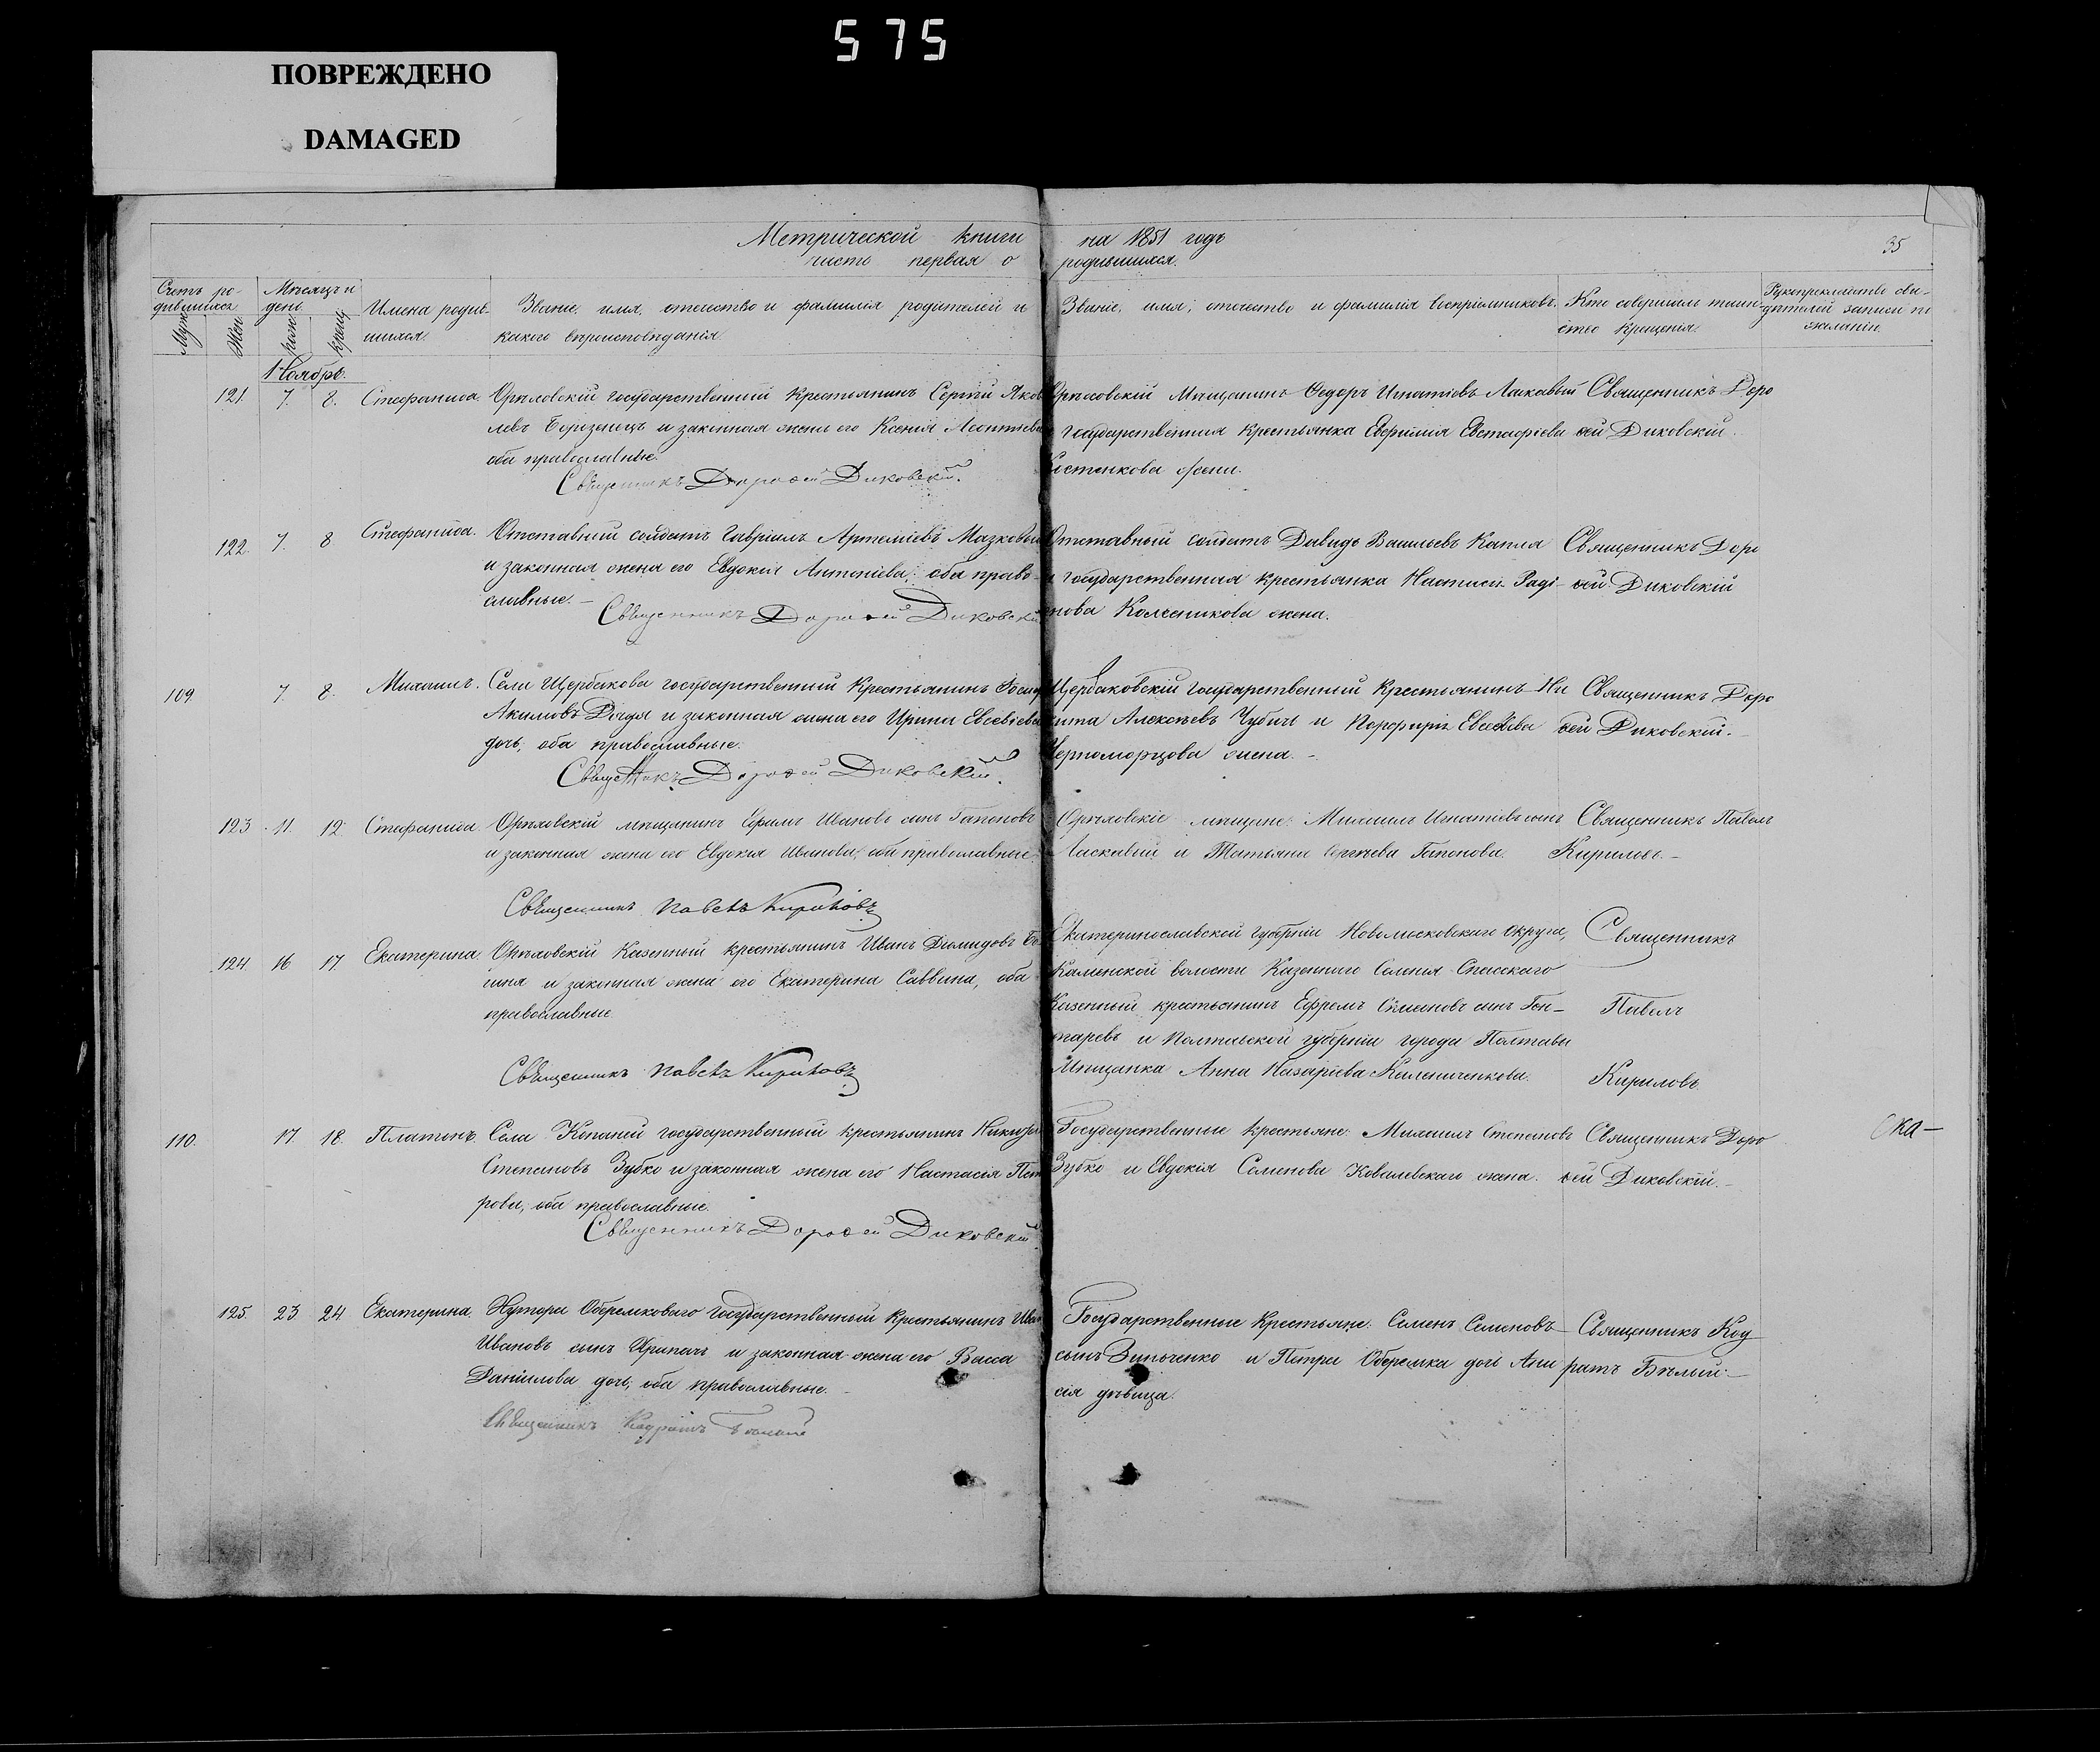 575
ПОВРЕЖДЕНО
DAMAGED
Метрической книги на 1851 годъ
часть первая о родившихся.
35
Счетъ ро-
дившихся
Муж
Жен
Мѣсяцъ и
день
рожд
крещ
Имена родив-
шихся.
Званіе, имя, отчество и фамилія родителей и
какого вѣроисповѣданія.
Званіе, имя, отчество и фамилія воспріемниковъ.
Кто совершалъ таин-
ство крещенія.
Рукоприкладство сви-
дѣтелей записи по
желанію.
Ноябрь.
121. 7. 8. Стефанида. Орѣховскій государственный крестьянинъ Сергій Яков
левъ Березенецъ и законная жена его Ксенія Леонтіева
оба православные.
Священникъ Дороѳей Диковскій.
Орѣховскій Мѣщанинъ Ѳедоръ Игнатіевъ Ласкавый
государственная крестьянка Евфимія Евстафіева
жена.
Священникъ Доро
ѳей Диковскій.
122. 7. 8 Стефанида. Отставный солдатъ Гавріилъ Артеміевъ
и законная жена его Евдокія Антоніева; оба право-
славные. –
Священникъ Дороѳей Диковскій
Отставный солдатъ Давидъ Васильевъ Капля
и государственная крестьянка Настасія Раді-
онова Колесникова жена.
Священникъ Доро
ѳей Диковскій
109. 7. 8. Михаилъ. Села Щербакова государственный Крестьянинъ
Акимовъ Дядя и законная жена его Ирина Евсевіева
дочь, оба православные.
Священникъ Дороѳей Диковскій.
Щербаковскій государственный Крестьянинъ Ни
кита Алексѣевъ Чубичъ и Порфирія
Черноморцова жена. –
Священникъ Доро
ѳей Диковскій.
123. 11. 12. Стефанида. Орѣховскій мѣщанинъ Ефимъ Ивановъ сынъ Гапоновъ
и законная жена его Евдокія Иванова, оба православные.
Священникъ Павелъ Кириловъ
Орѣховскіе мѣщане: Михаилъ Игнатіевъ сынъ
Ласкавый и Татьяна Сергѣева Гапонова.
Священникъ Павелъ
Кириловъ. –
124. 16 17. Екатерина. Орѣховскій Казенный крестьянинъ Иванъ Діомидовъ
и законная жена его Екатерина Саввина, оба
православные.
Священникъ Павелъ Кириловъ
Екатеринославской губерніи Новомосковскаго округа,
Каменской волости Казеннаго Селенія Спасскаго
Казенный крестьянинъ Ефремъ Симеоновъ сынъ Гон-
таревъ и Полтавской губерніи города Полтавы
Мѣщанка Анна Назаріева Калениченкова.
Священникъ
Павелъ
Кириловъ
110. 17. 18. Платонъ. Села Копаней государственный крестьянинъ
Степановъ Зубко и законная жена его Настасія Пет
рова, оба православные.
Священникъ Дороѳей Диковскій
Государственные крестьяне: Михаилъ Степановъ
Зубко и Евдокія Семенова Ковалевскаго жена.
Священникъ Доро
ѳей Диковскій. –
ска –
125. 23 24 Екатерина. Хутора Оберемковаго государственный крестьянинъ Иван
Ивановъ сынъ и законная жена его Васса
Даніилова дочь, оба православные. –
Священникъ Кодратъ Бѣлый
Государственные Крестьяне: Семенъ Семеновъ
сынъ Зинченко и Петра Оберемка дочь Ани
сія дѣвица.
Священникъ Код
ратъ Бѣлый. –